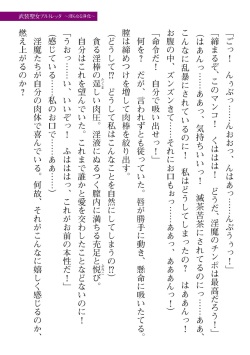 「ごっ！　んぅぷっ……んおおっ、んはあっ……んぷうぅっ！」
「締まるぞ、このマンコ！　くはははっ！　どうだ、淫魔のチンポは最高だろう！」
「はぁんっ……あぁっ、気持ちいいっ！　滅茶苦茶にされてるのにっ……ああっ、
こんなに乱暴にされているのに！　私はどうしてしまったの？　はああんっ！
お腹の中、ズンズンきて……それにお口もぉ……ああっ、あああんっ！」
「命令だ！　自分で吸い出せっ！」
　何を？　だが、言われずとも従っていた。唇が勝手に動き、懸命に吸いたてる。
膣は締めつけを増して肉棒を絞り出す。
（どうして!?　私はどうしてこんなことを自然にしてしまうの!?）
　貪る淫棒の逞しい圧、淫液にぬるつく膣内に満ちる充足と悦び。
　自分はこれを望んでいた、これまで誰かと愛を交わしたことなどないのに。
「うおっ……い、いいぞっ！　ふははっ、これがお前の本性だ！」
（感じている……私のお口で……ああ……）
　淫魔たちが自分の肉体で喜んでいる。何故、それがこんなに嬉しく感じるのか、
燃え上がるのか？